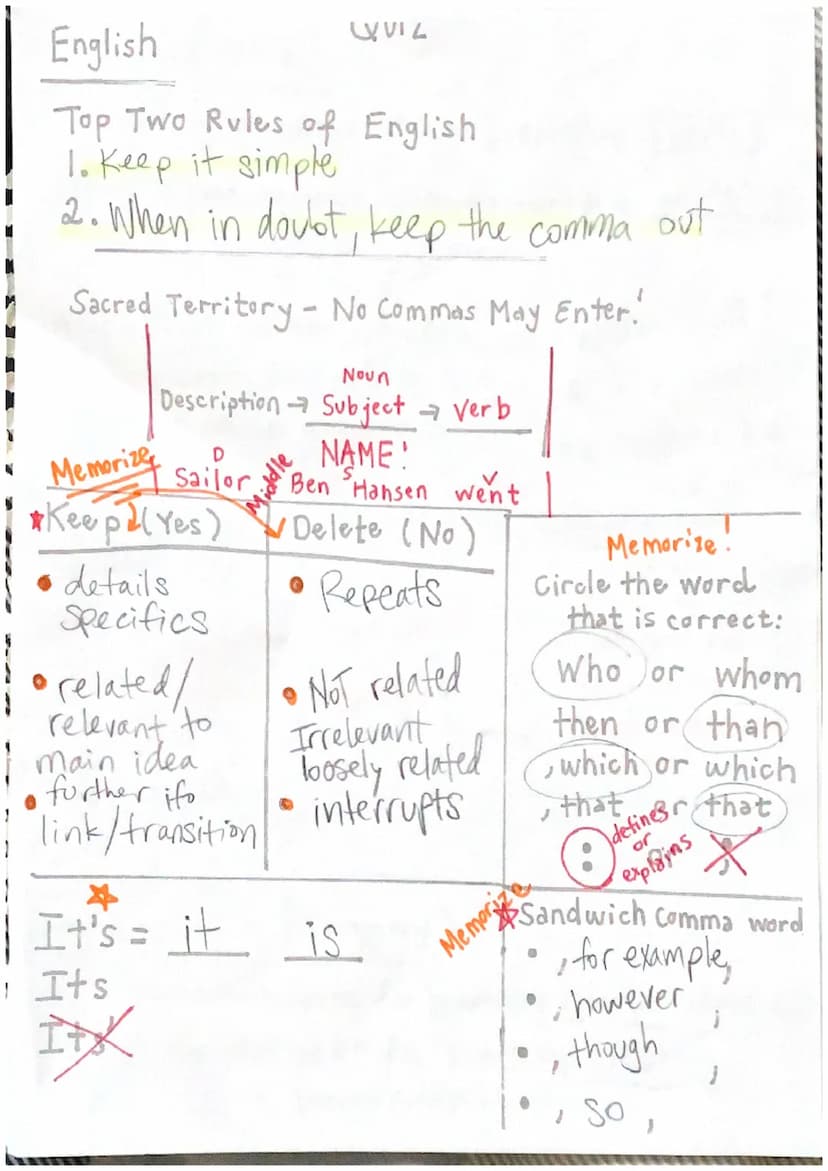 QUIZ
English
Top Two Rules of English
1. Keep it simple
2. When in doubt, keep the comma out
Sacred Territory - No Commas May Enter!
Noun
Description → Subject → Verb
NAME!
Memorize
D
S
v
Sailor Middle Ben Hansen went
Keep (Yes)
details
specifics
related/
relevant to
main idea
further ifo
link/transition
Delete (No)
Repeats
NOT related
Irrelevant
loosely related
interrupts
Memorize!
Circle the word
that is correct:
Who or whom
then or than
, which or which
, that or that
: defines
or
explains
;
It's = it is
Its
Its'
Memorize
Sandwich Comma word
, for example,
, however ,
, though ,
, so ,